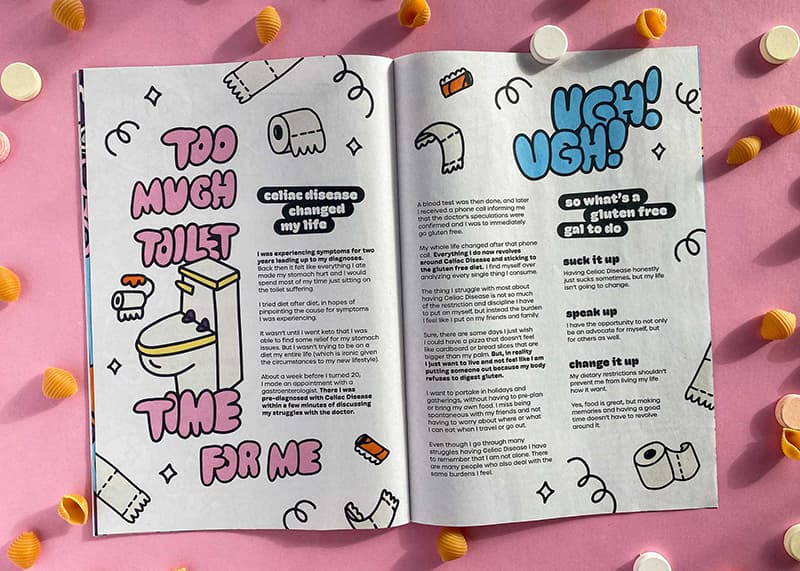 TOO
MUCH
TOILET
TIME
FOR ME
celiac disease
changed
my life
I was experiencing symptoms for two
years leading up to my diagnoses.
Back then it felt like everything I ate
made my stomach hurt and I would
spend most of my time just sitting on
the toilet suffering.
I tried diet after diet, in hopes of
pinpointing the cause for symptoms
I was experiencing.
It wasn't until I went keto that I was
able to find some relief for my stomach
issues. But I wasn't trying to be on a
diet my entire life (which is ironic given
the circumstances to my new lifestyle).
About a week before I turned 20,
I made an appointment with a
gastroenterologist. There I was
pre-diagnosed with Celiac Disease
within a few minutes of discussing
my struggles with the doctor.
UGH!
UGH!
A blood test was then done, and later
I received a phone call informing me
that the doctor's speculations were
confirmed and I was to immediately
go gluten free.
My whole life changed after that phone
call. Everything I do now revolves
around Celiac Disease and sticking to
the gluten free diet. I find myself over
analyzing every single thing I consume.
The thing I struggle with most about
having Celiac Disease is not so much
of the restriction and discipline I have
to put on myself, but instead the burden
I feel like I put on my friends and family.
Sure, there are some days I just wish
I could have a pizza that doesn't feel
like cardboard or bread slices that are
bigger than my palm. But, in reality
I just want to live and not feel like I am
putting someone out because my body
refuses to digest gluten.
I want to partake in holidays and
gatherings, without having to pre-plan
or bring my own food. I miss being
spontaneous with my friends and not
having to worry about where or what
I can eat when I travel or go out.
Even though I go through many
struggles having Celiac Disease I have
to remember that I am not alone. There
are many people who also deal with the
same burdens I feel.
so what's a
gluten free
gal to do
suck it up
Having Celiac Disease honestly
just sucks sometimes, but my life
isn't going to change.
speak up
I have the opportunity to not only
be an advocate for myself, but
for others as well.
change it up
My dietary restrictions shouldn't
prevent me from living my life
how I want it.
Yes, food is great, but making
memories and having a good
time doesn't have to revolve
around it.